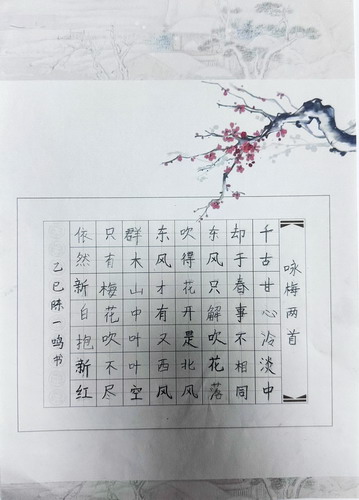 咏梅两首
千古甘心冷淡中
却于春事不相同
东风只解吹花落
吹得花开是北风
东风才有又西风
群木山中叶叶空
只有梅花吹不尽
依然新白抱新红
乙巳陈一鸣书